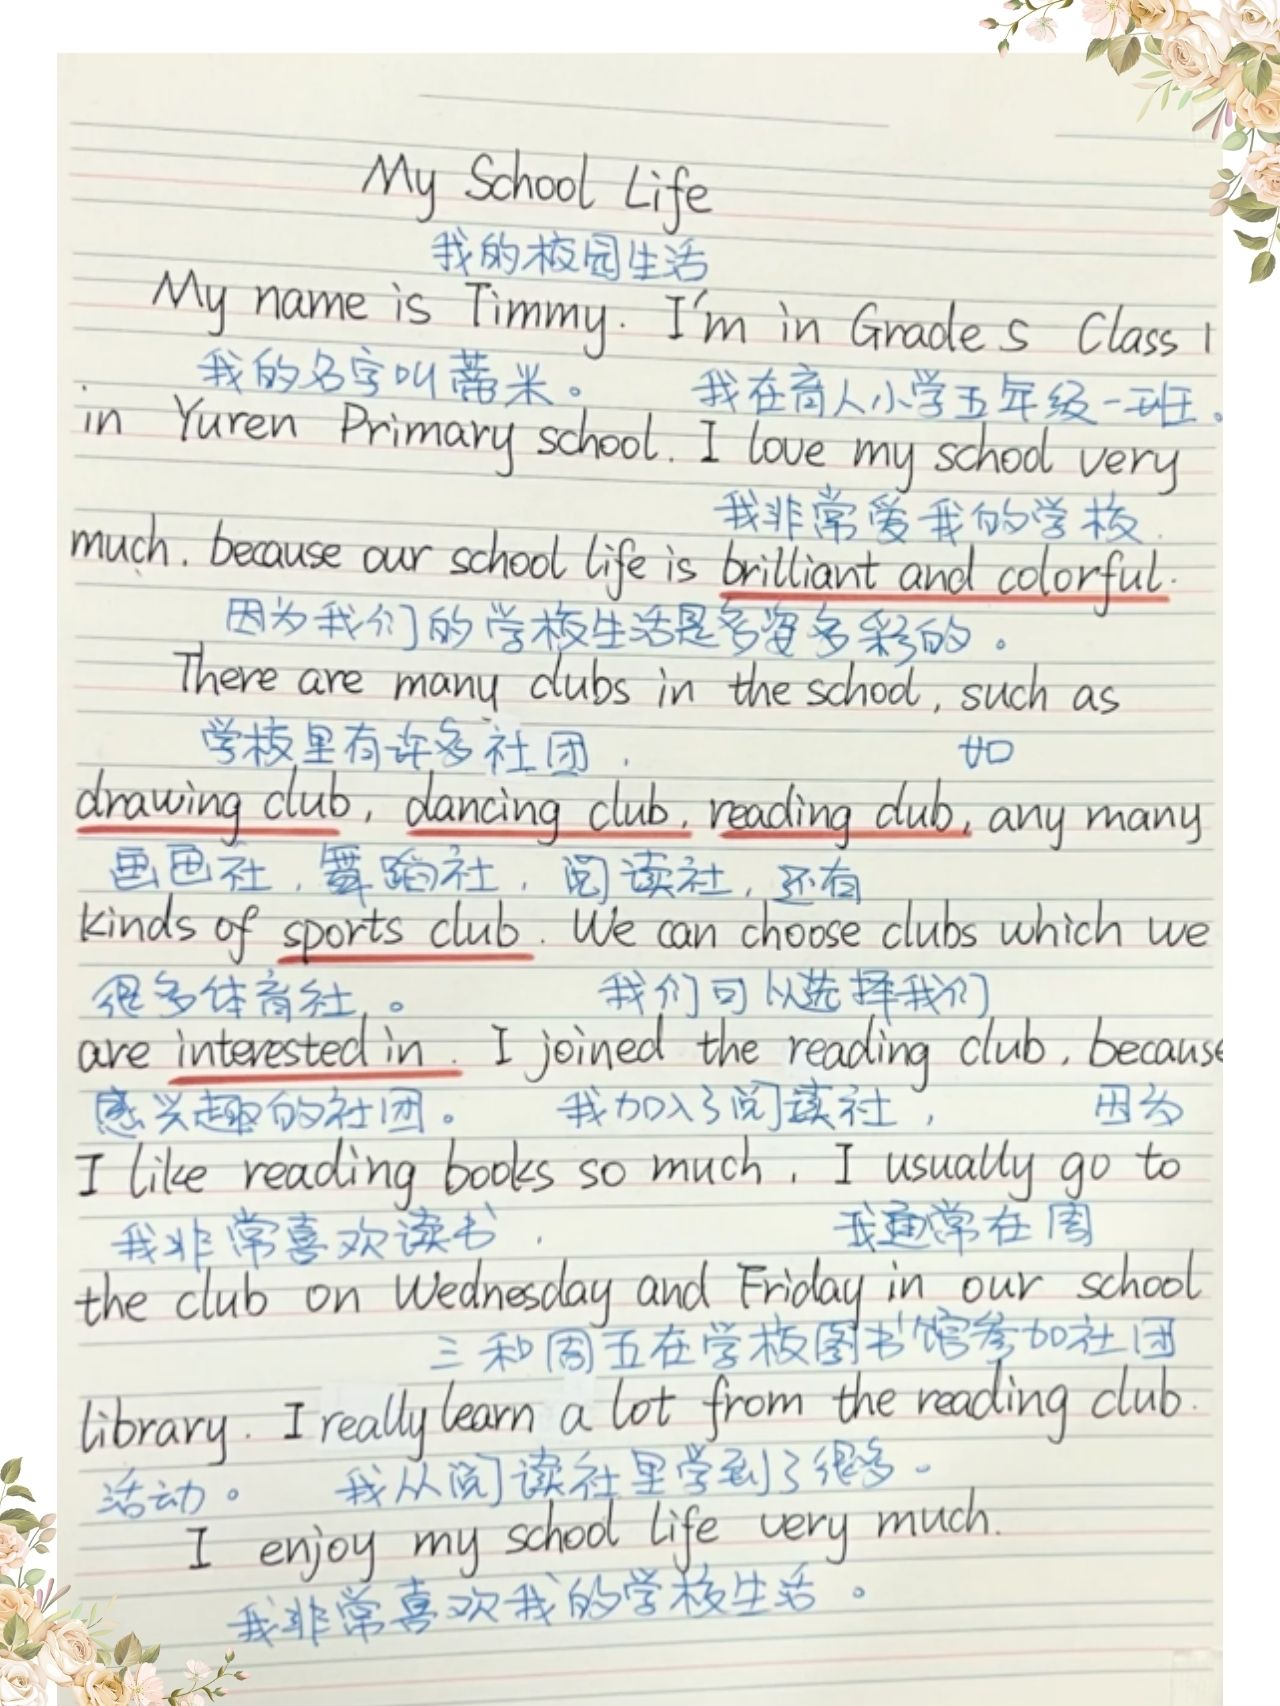 My School Life
我的校园生活
My name is Timmy. I'm in Grade 5 Class 1
我的名字叫蒂米。 我在育人小学五年级一班。
in Yuren Primary school. I love my school very
我非常爱我的学校
much. because our school life is brilliant and colorful.
因为我们的学校生活是多姿多彩的。
There are many clubs in the school, such as
学校里有许多社团, 如
drawing club, dancing club, reading club, any many
画画社,舞蹈社,阅读社,还有
kinds of sports club. We can choose clubs which we
很多体育社。 我们可以选择我们
are interested in. I joined the reading club, because
感兴趣的社团。 我加入了阅读社, 因为
I like reading books so much. I usually go to
我非常喜欢读书, 我通常在周
the club on Wednesday and Friday in our school
三和周五在学校图书馆参加社团
library. I really learn a lot from the reading club.
活动。 我从阅读社里学到了很多。
I enjoy my school life very much.
我非常喜欢我的学校生活。